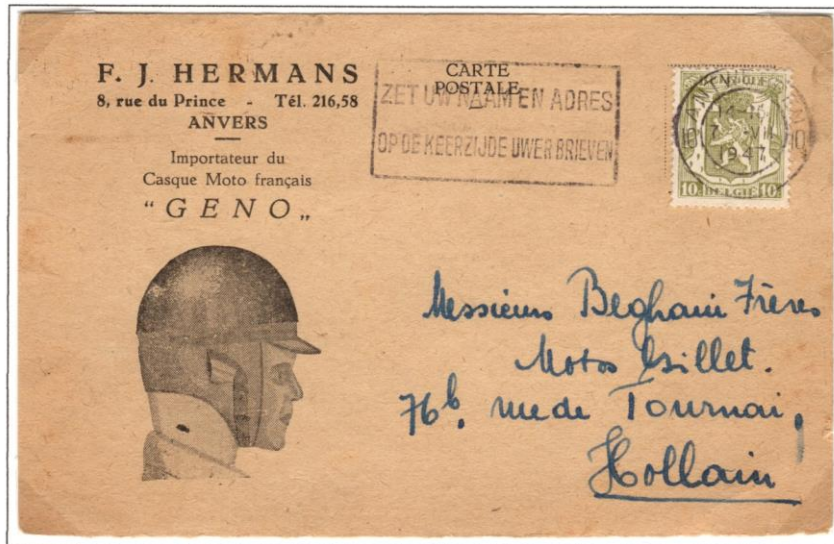 F. J. HERMANS
8, rue du Prince - Tél. 216,58
ANVERS
Importateur du
Casque Moto français
“GENO„
CARTE
POSTALE
ZET UW NAAM EN ADRES
OP DE KEERZIJDE UWER BRIEVEN
BELGIQUE
ANTWERPEN
1947
10 BELGIË 10
Messieurs Beghain Frères
Motos Gillet.
76b, rue de Tournai,
Hollain